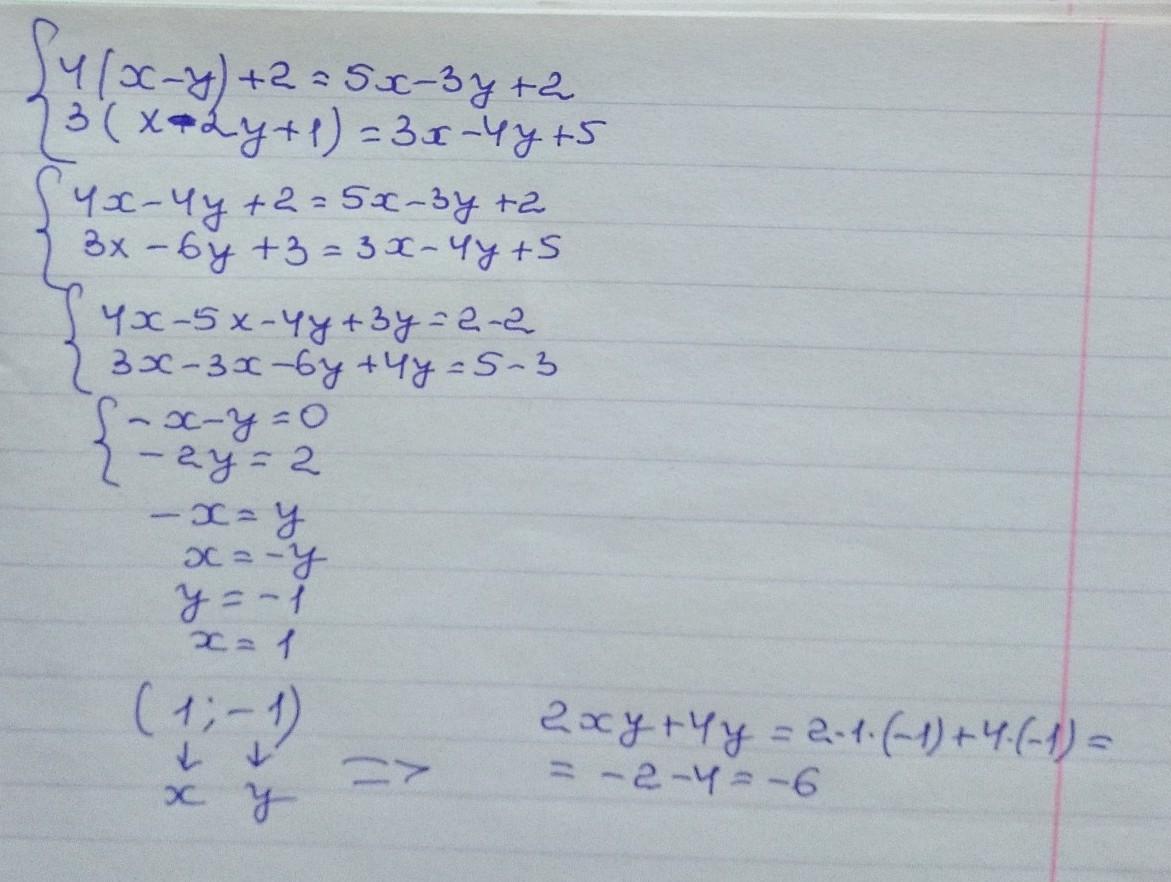 4(x-y)+2=5x-3y+2
3(x-2y+1)=3x-4y+5
4x-4y+2=5x-3y+2
3x-6y+3=3x-4y+5
4x-5x-4y+3y=2-2
3x-3x-6y+4y=5-3
-x-y=0
-2y=2
-x=y
x=-y
y=-1
x=1
(1;-1)
↓ ↓
x y
=> 2xy+4y=2·1·(-1)+4·(-1)=
=-2-4=-6